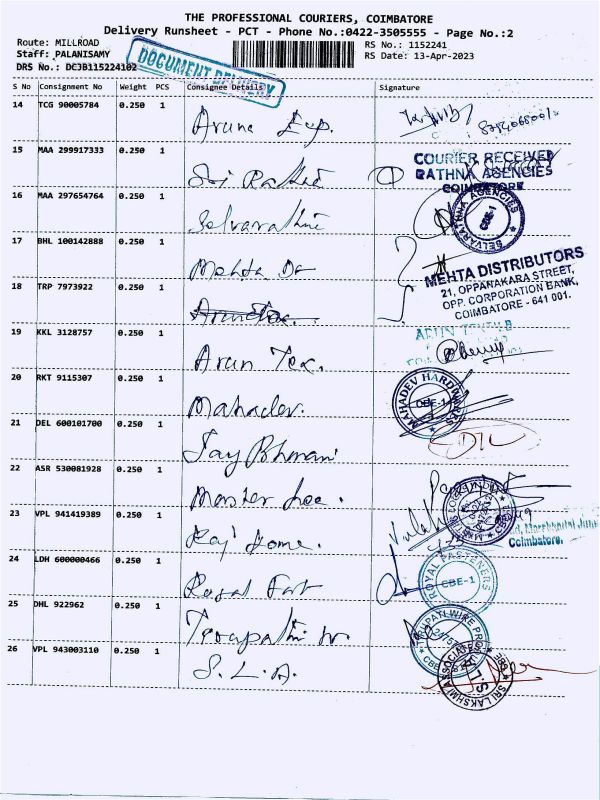 THE PROFESSIONAL COURIERS, COIMBATORE
Delivery Runsheet - PCT - Phone No.:0422-3505555 - Page No.:2
Route: MILLROAD
RS No.: 1152241
Staff: PALANISAMY
RS Date: 13-Apr-2023
DRS No.: DCJB115224102
DOCUMENT DELIVERY
S No Consignment No Weight PCS Consignee Details Signature
14 TCG 90005784 0.250 1
Arune Exp.
15 MAA 299917333 0.250 1
Sri Rathi
COURIER RECEIVED
RATHNA AGENCIES
COIMBATORE
16 MAA 297654764 0.250 1
Selvarathi
SELVARATHNA AGENCIES
CBE-1
17 BHL 100142888 0.250 1
Mehta Dr
MEHTA DISTRIBUTORS
21, OPPANAKARA STREET,
OPP. CORPORATION BANK,
COIMBATORE - 641 001.
18 TRP 7973922 0.250 1
19 KKL 3128757 0.250 1
Arun Tex.
20 RKT 9115307 0.250 1
Mahadev.
MAHADEV HARDWARES
CBE-1
21 DEL 600101700 0.250 1
Jay Bhavani
22 ASR 530081928 0.250 1
Master Loc.
23 VPL 941419389 0.250 1
Raj Home.
Coimbatore.
24 LDH 600000466 0.250 1
Royal Fast
ROYAL FASTENERS
CBE-1
25 DHL 922962 0.250 1
Tirupathi w.
26 VPL 943003110 0.250 1
S. L. A.
SRI LAKSHMI ASSOCIATES
S.L.A